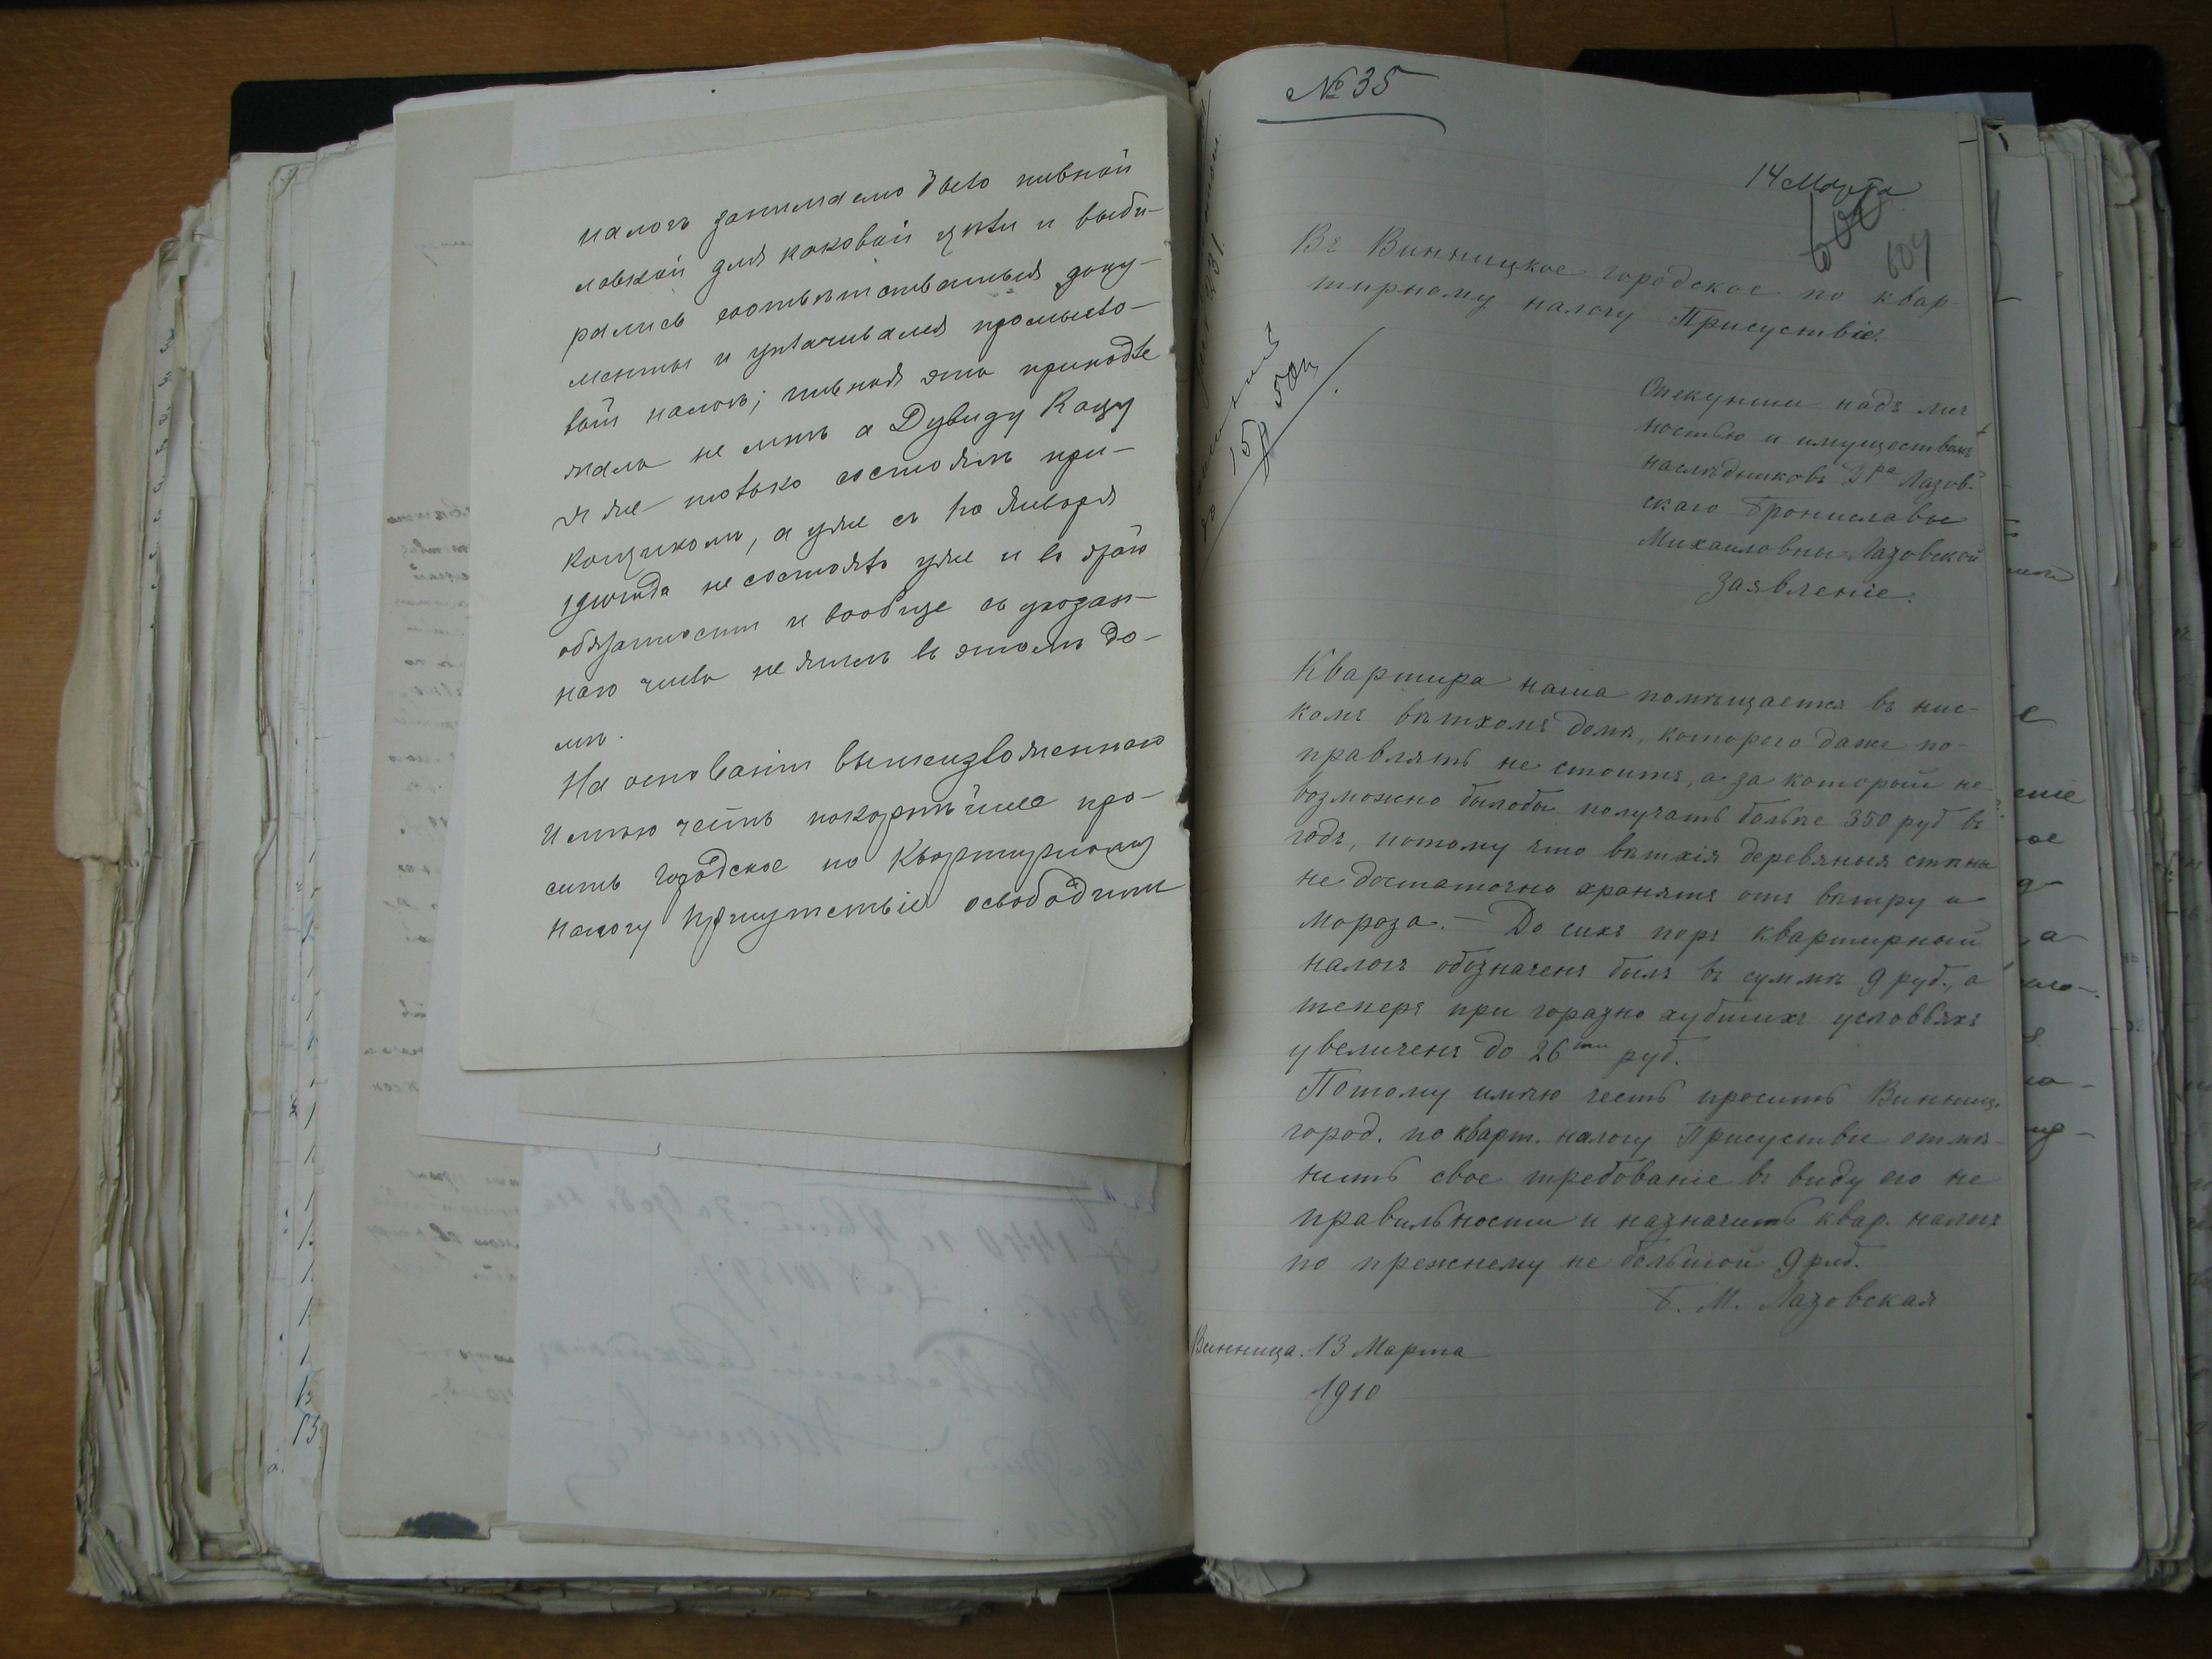 налогъ занимаемо было пивной
лавкой для каковой цѣли и выби-
рались соотвѣтственныя доку-
менты и уплачивался промысло-
вый налогъ; пивная эта принадле
жала не мнѣ а Дувиду Кацу
я же только состоялъ при-
кащикомъ, а уже съ 1го Января
1910 года не состоялъ уже и въ этой
обязанности и вообще съ указан-
наго числа не жилъ въ этомъ до-
мѣ.
На основаніи вышеизложеннаго
имѣю честь покорнѣйше про-
сить городское по квартирному
налогу присутствіе освободить
№ 35
14 Марта
604
Въ Винницкое городское по квар-
тирному налогу Присуствіе.
15 р 50 к
Опекунши надъ лич
ностью и имуществомъ
наслѣдниковъ Дра Лазов-
скаго Брониславы
Михаиловны Лазовской
Заявленіе.
Квартира наша помѣщается въ нис-
комъ вѣтхомъ домѣ, которого даже по-
правлять не стоитъ, а за который не
возможно былобы получать больше 350 руб въ
годъ, потому что вѣтхія деревяныя стѣны
не достаточно хранятъ отъ вѣтру и
мороза. – До сихъ поръ квартирный
налогъ обозначенъ былъ въ суммѣ 9 руб., а
теперъ при горазно худшихъ условвяхъ
увеличенъ до 26ти руб.
Потому имѣю честь просить Винниц.
город. по кварт. налогу Присуствіе отмѣ-
нить свое требованіе въ виду его не
правильности и назначить квар. налогъ
по прежнему не большой 9 руб.
Б. М. Лазовская
Винница. 13 Марта
1910